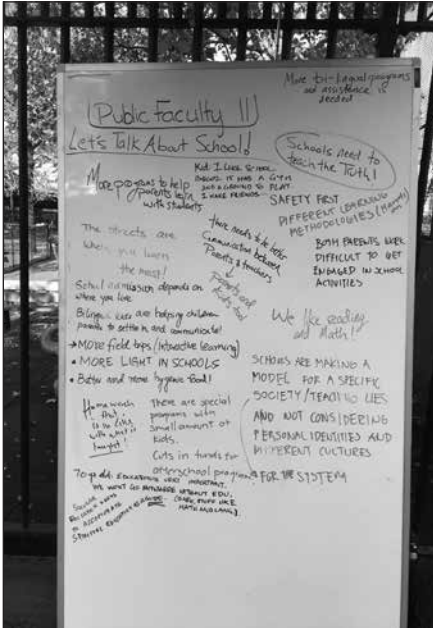 More bi-lingual programs
and assistance is
needed
Public Faculty 11
Let's Talk About School!
Schools need to
teach the Truth!
More programs to help
parents learn
with students
Kid: I LIKE SCHOOL
BECAUSE IT HAS A GYM
AND A GROUND TO PLAY.
I HAVE FRIENDS
SAFETY FIRST
DIFFERENT LEARNING
METHODOLOGIES
The streets are
where you learn
the most!
there needs to be better
Communication between
Parents & teachers
Parents and
kids too!
BOTH PARENTS WORK
DIFFICULT TO GET
ENGAGED IN SCHOOL
ACTIVITIES
School admission depends on
where you live
Bilingual kids are helping children
parents to settle in and communicate!
We like reading
and Math!
→ MORE field trips (Interactive learning)
• MORE LIGHT IN SCHOOLS
• Better and more hygenic food!
SCHOOLS ARE MAKING A
MODEL FOR A SPECIFIC
SOCIETY/TEACHING LIES
AND NOT CONSIDERING
PERSONAL IDENTITIES AND
DIFFERENT CULTURES
FOR THE SYSTEM
Homework
that
is in line
with what is
taught!
There are special
programs with
small amount of
kids.
Cuts in funds for
afterschool programs
EDUCATION IS VERY IMPORTANT.
WE WON'T GO ANYWHERE WITHOUT EDU.
MATH AND LANG.